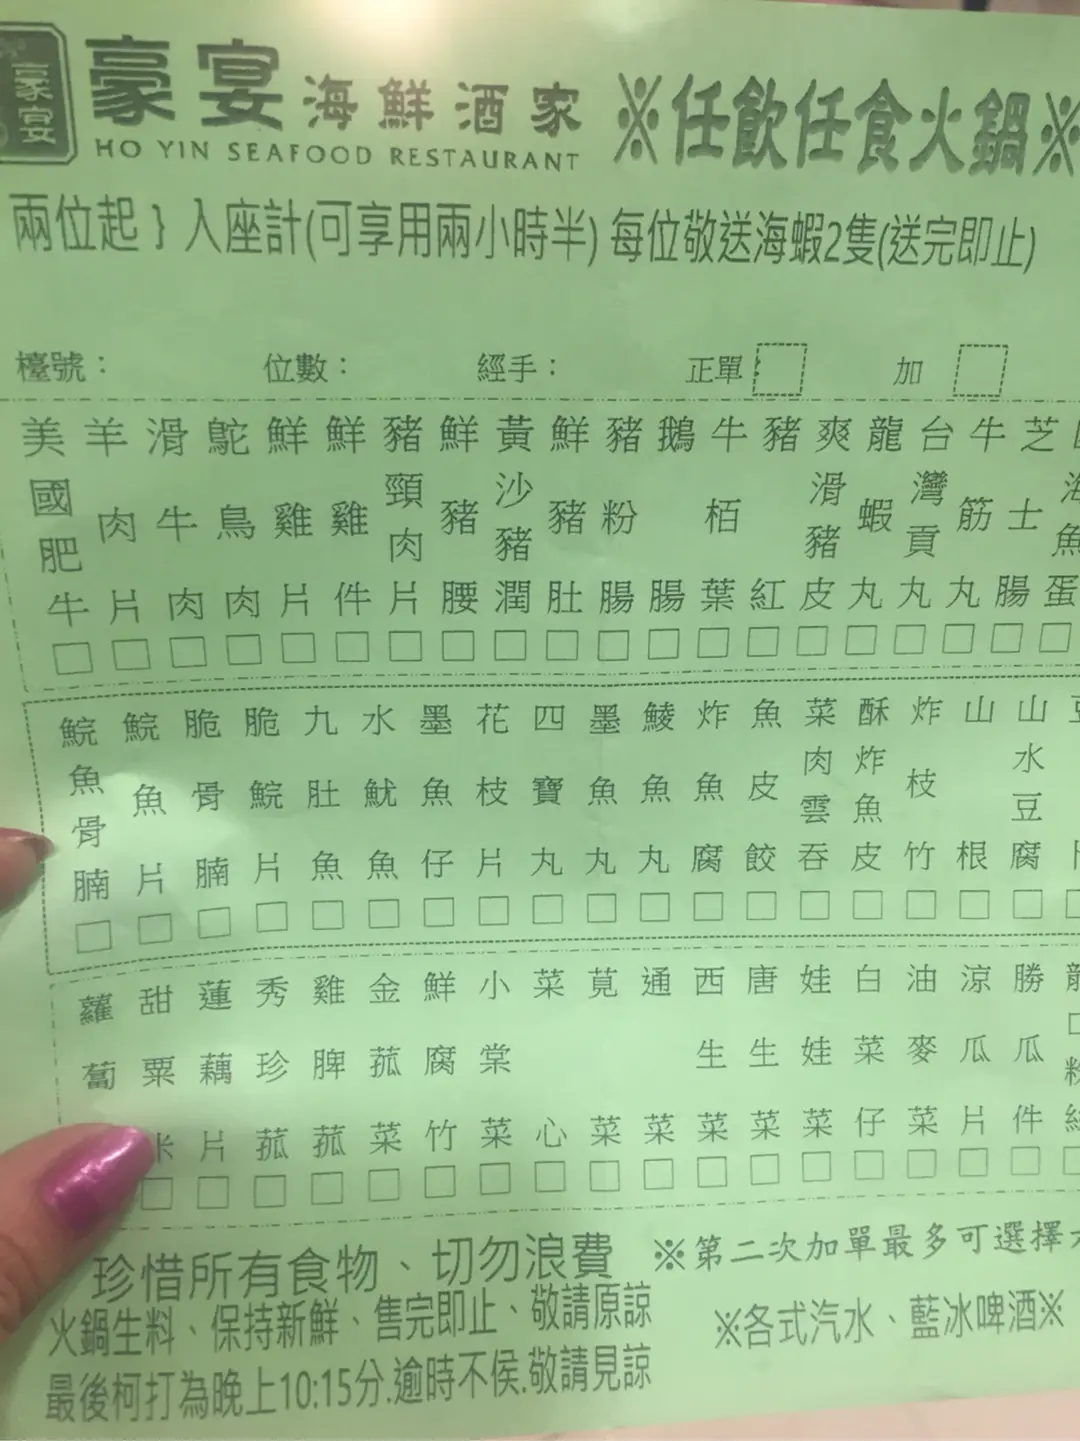 豪宴
豪宴海鮮酒家
HO YIN SEAFOOD RESTAURANT
※任飲任食火鍋※
兩位起 } 入座計(可享用兩小時半) 每位敬送海蝦2隻(送完即止)
檯號： 位數： 經手： 正單： 加
美國肥牛
羊肉片
滑牛肉
鴕鳥肉
鮮雞片
鮮雞件
豬頸肉片
鮮豬腰
黃沙豬潤
鮮豬肚
豬粉腸
鵝腸
牛栢葉
豬紅
爽滑豬皮
龍蝦丸
台灣貢丸
牛筋丸
芝士腸
海魚蛋
鯇魚骨腩
鯇魚片
脆骨腩
脆鯇片
九肚魚
水魷魚
墨魚仔
花枝片
四寶丸
墨魚丸
鯪魚丸
炸魚腐
魚皮餃
菜肉雲吞
酥炸魚皮
炸枝竹
山根
山水豆腐
蘿蔔
甜粟米
蓮藕片
秀珍菰
雞脾菰
金菰菜
鮮腐竹
小棠菜
菜心
莧菜
通菜
西生菜
唐生菜
娃娃菜
白菜仔
油麥菜
涼瓜片
勝瓜件
珍惜所有食物、切勿浪費
※第二次加單最多可選擇
火鍋生料、保持新鮮、售完即止、敬請原諒
※各式汽水、藍冰啤酒※
最後柯打為晚上10:15分.逾時不侯.敬請見諒